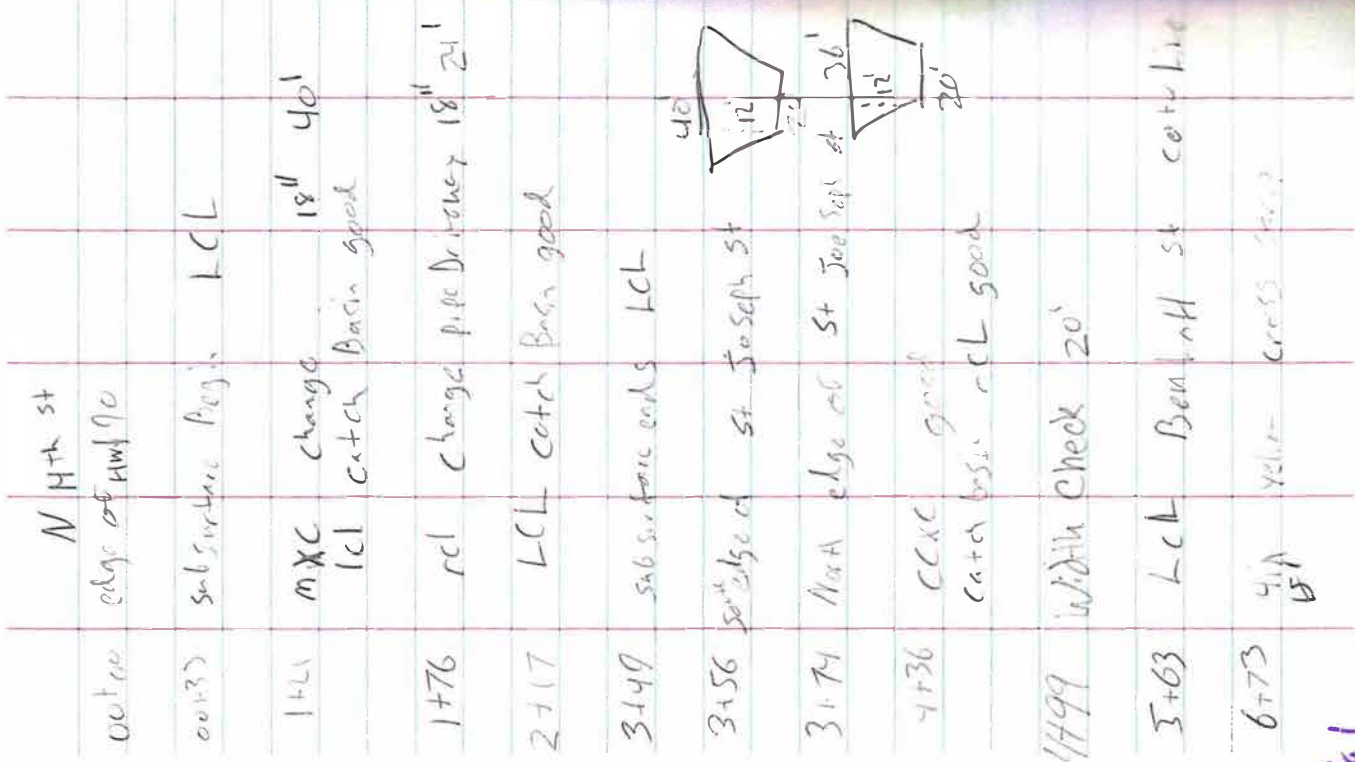 N 14th st
edge of HWY 90
00+33 subsurface Begin LCL
1+21 MXC change 18" 40'
lcl catch Basin good
1+76 rcl change pipe Driveway 18" 24'
2+17 LCL catch Basin good
3+49 subsurface ends LCL
3+56 south edge of St Joseph St
40'
12'
3+74 North edge of St Joe Seph st 36'
12'
20'
4+36 CCXC good
catch basin rCL good
4+99 width Check 20'
5+63 LCL st
6+73 cross